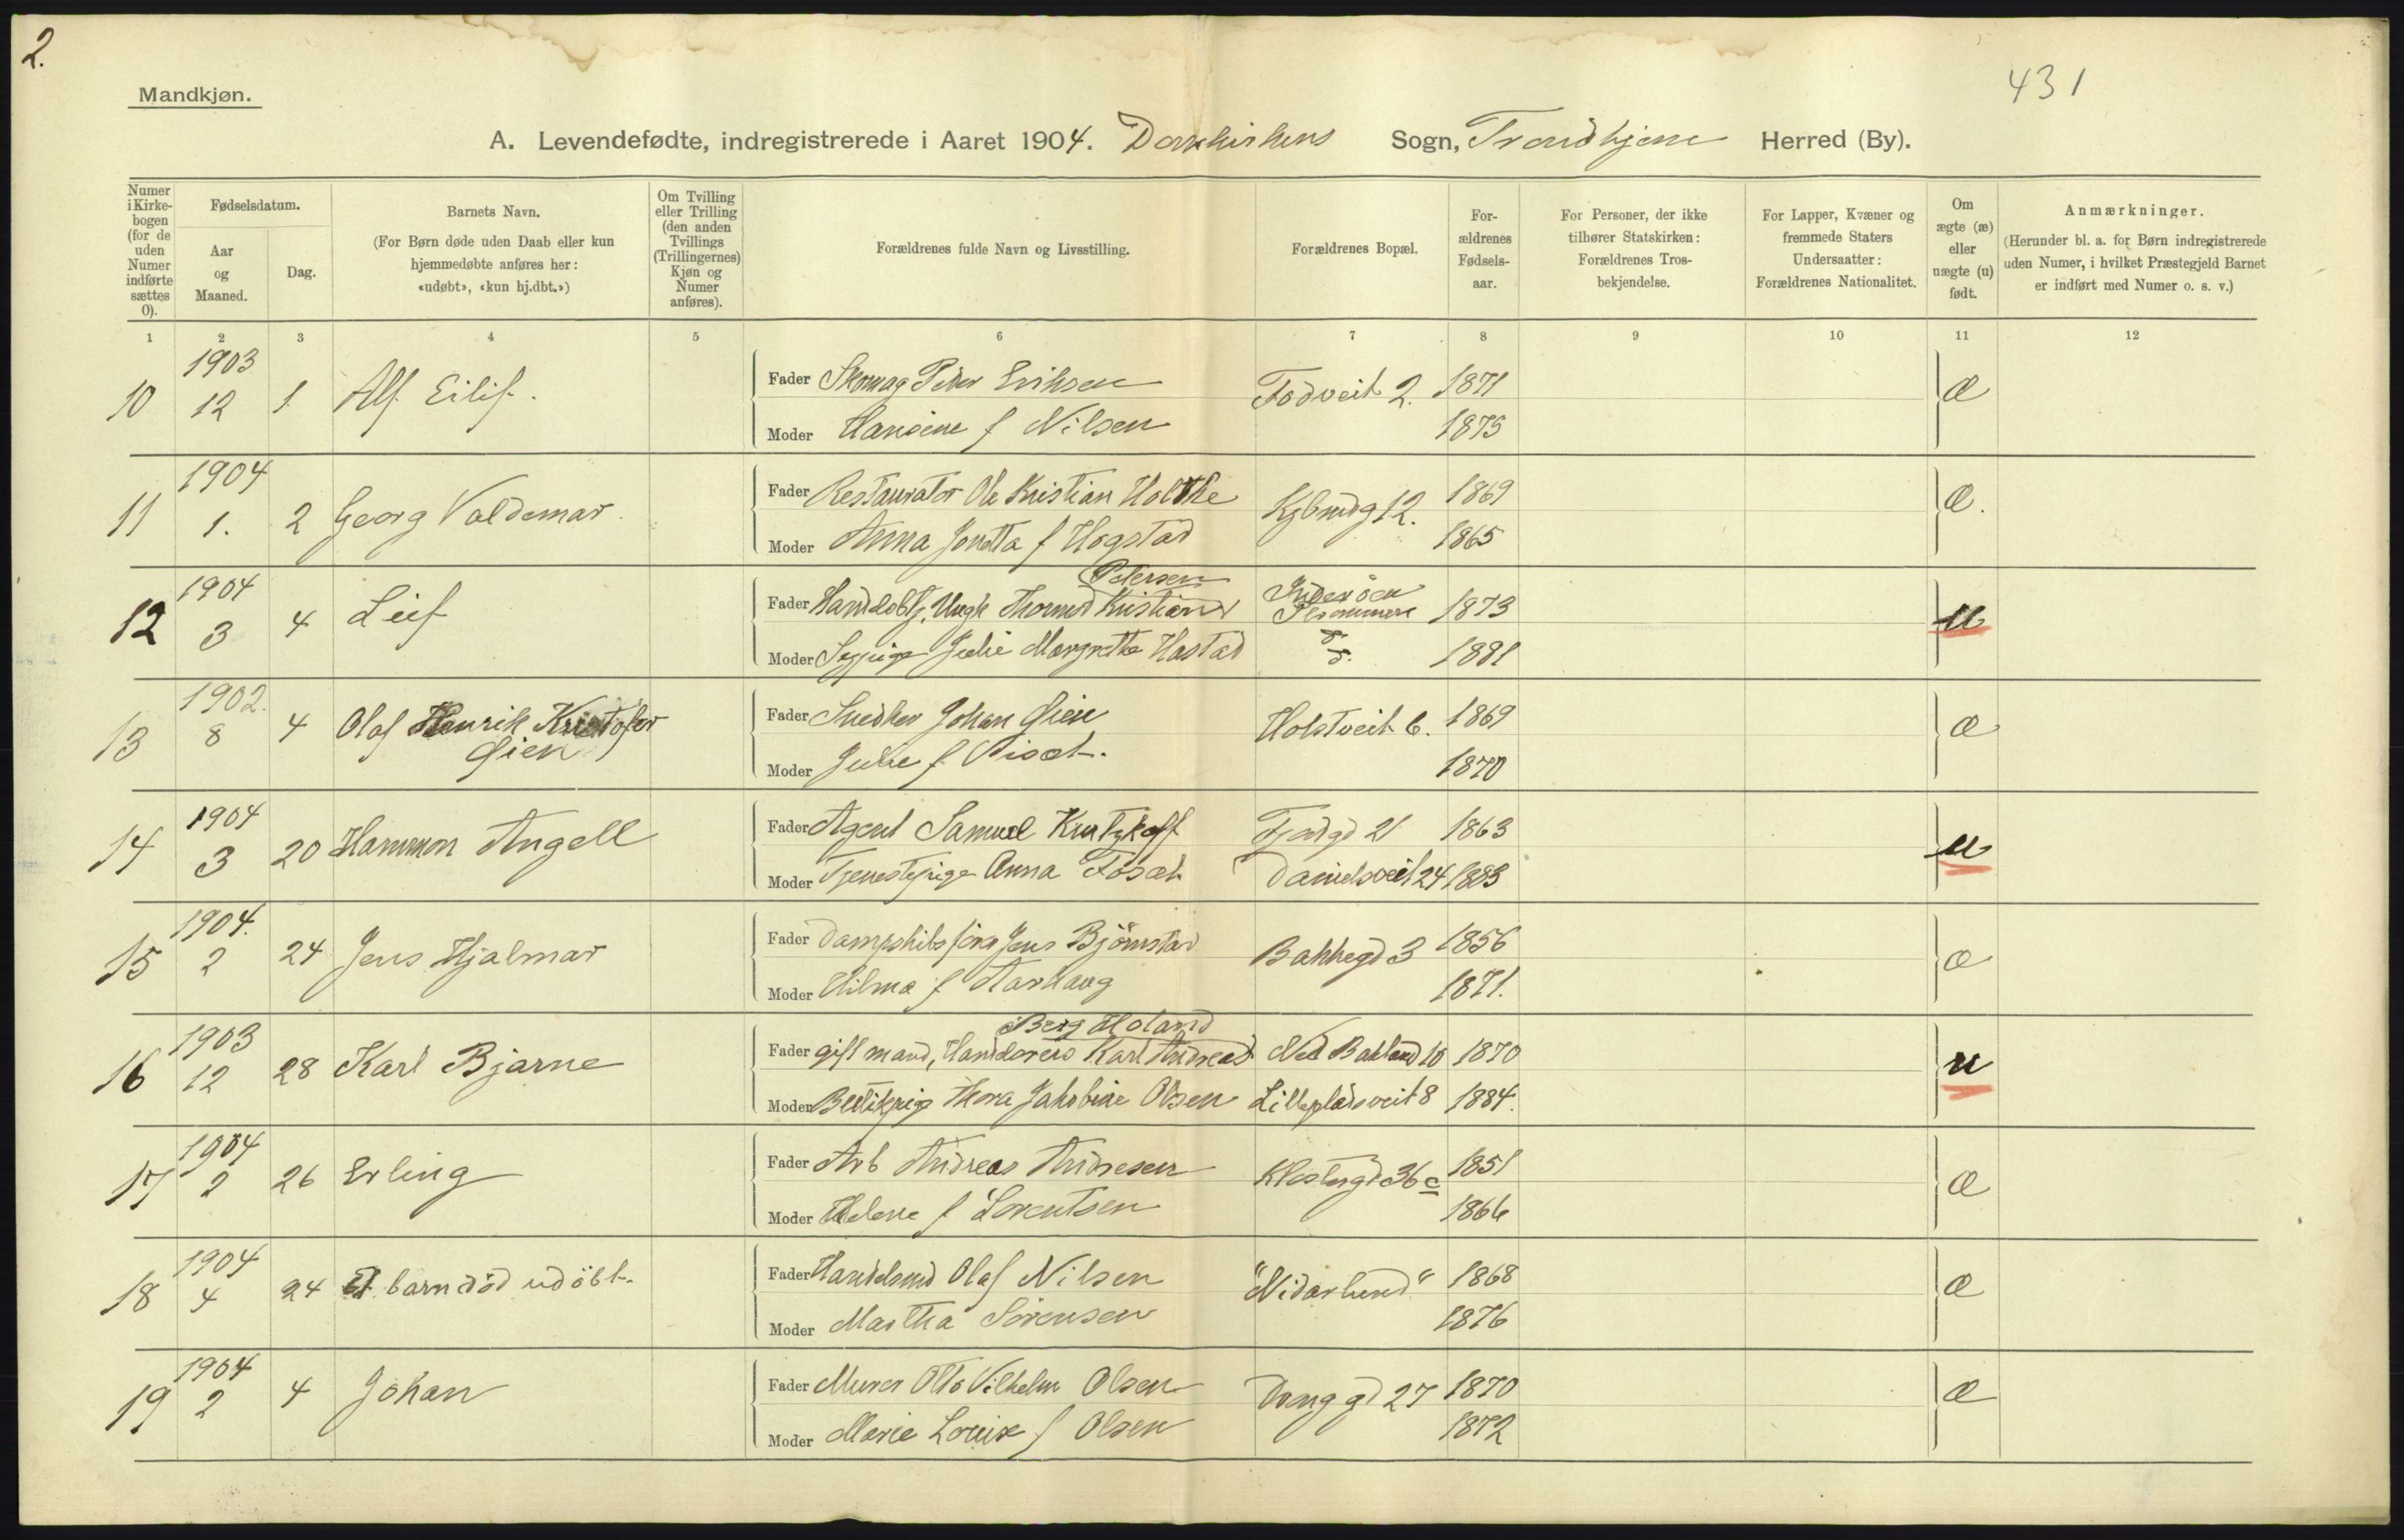 2.
431
Mandkjøn.
A. Levendefødte, indregistrerede i Aaret 1904. Domkirkens Sogn, Trondhjem Herred (By).
Numer i Kirke-bogen (for de uden Numer indførte sættes 0).
Fødselsdatum.
Aar og Maaned.
Dag.
Barnets Navn.
(For Børn døde uden Daab eller kun hjemmedøbte anføres her: «udøbt», «kun hj.dbt.»)
Om Tvilling eller Trilling (den anden Tvillings (Trillingernes) Kjøn og Numer anføres).
Forældrenes fulde Navn og Livsstilling.
Forældrenes Bopæl.
For-ældrenes Fødsels-aar.
For Personer, der ikke tilhører Statskirken: Forældrenes Tros-bekjendelse.
For Lapper, Kvæner og fremmede Staters Undersaatter: Forældrenes Nationalitet.
Om ægte (æ) eller uægte (u) født.
Anmærkninger.
(Herunder bl. a. for Børn indregistrerede uden Numer, i hvilket Præstegjeld Barnet er indført med Numer o. s. v.)
1 2 3 4 5 6 7 8 9 10 11 12
10 1903 12 1. Alf Eilif. Fader Skomag Peder Eriksen Fodveit 2. 1871 æ
Moder Hansine f Nilsen 1875
11 1904 1. 2 Georg Valdemar. Fader Restauratør Ole Kristian Holthe Kjbmdg 12. 1869 æ.
Moder Anna Jonetta f Hogstad 1865
12 1904 3 4 Leif Fader Handelsbtj. Ungk Thorvald Kristian Petersen Inderöen 1873 u
Moder Sypige Julie Margrethe Hastad 1881
13 1902. 8 4 Olaf Henrik Kristofer Gien Fader Snedker Johan Gien Holstveit 6. 1869 æ
Moder Julie f 1870
14 1904 3 20 Hammon Angell Fader Agent Samuel Krutzkoff Fjordgd 21 1863 u
Moder Tjenestepige Anna Fosæt Danielsveit 24 1883
15 1904. 2 24 Jens Hjalmar Fader Dampskibsförer Jens Björnstad Bakkegd 3 1856 æ
Moder Hilma f Aarhaug 1871.
16 1903 12 28 Karl Bjarne Fader gift mand, Handelsreis Karl Andreas Berg Holand Ned Bakland 10 1870 u
Moder Butikpige Thora Jakobine Olsen Lillepladsveit 8 1884.
17 1904 2 26 Erling Fader Arb Andreas Andresen Klostergd 36 c 1851 æ
Moder Helene f Lorentsen 1866
18 1904 4 24 Et barn död udöbt. Fader Handelsmd Olaf Nilsen "Nidarlund" 1868 æ
Moder Martha Sörensen 1876
19 1904 2 4 Johan Fader Murer Otto Vilhelm Olsen Vonggd 27 1870 æ
Moder Marie Louise f Olsen 1872